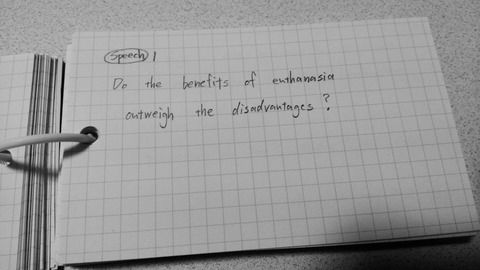 Speech 1
Do the benefits of euthanasia
outweigh the disadvantages?